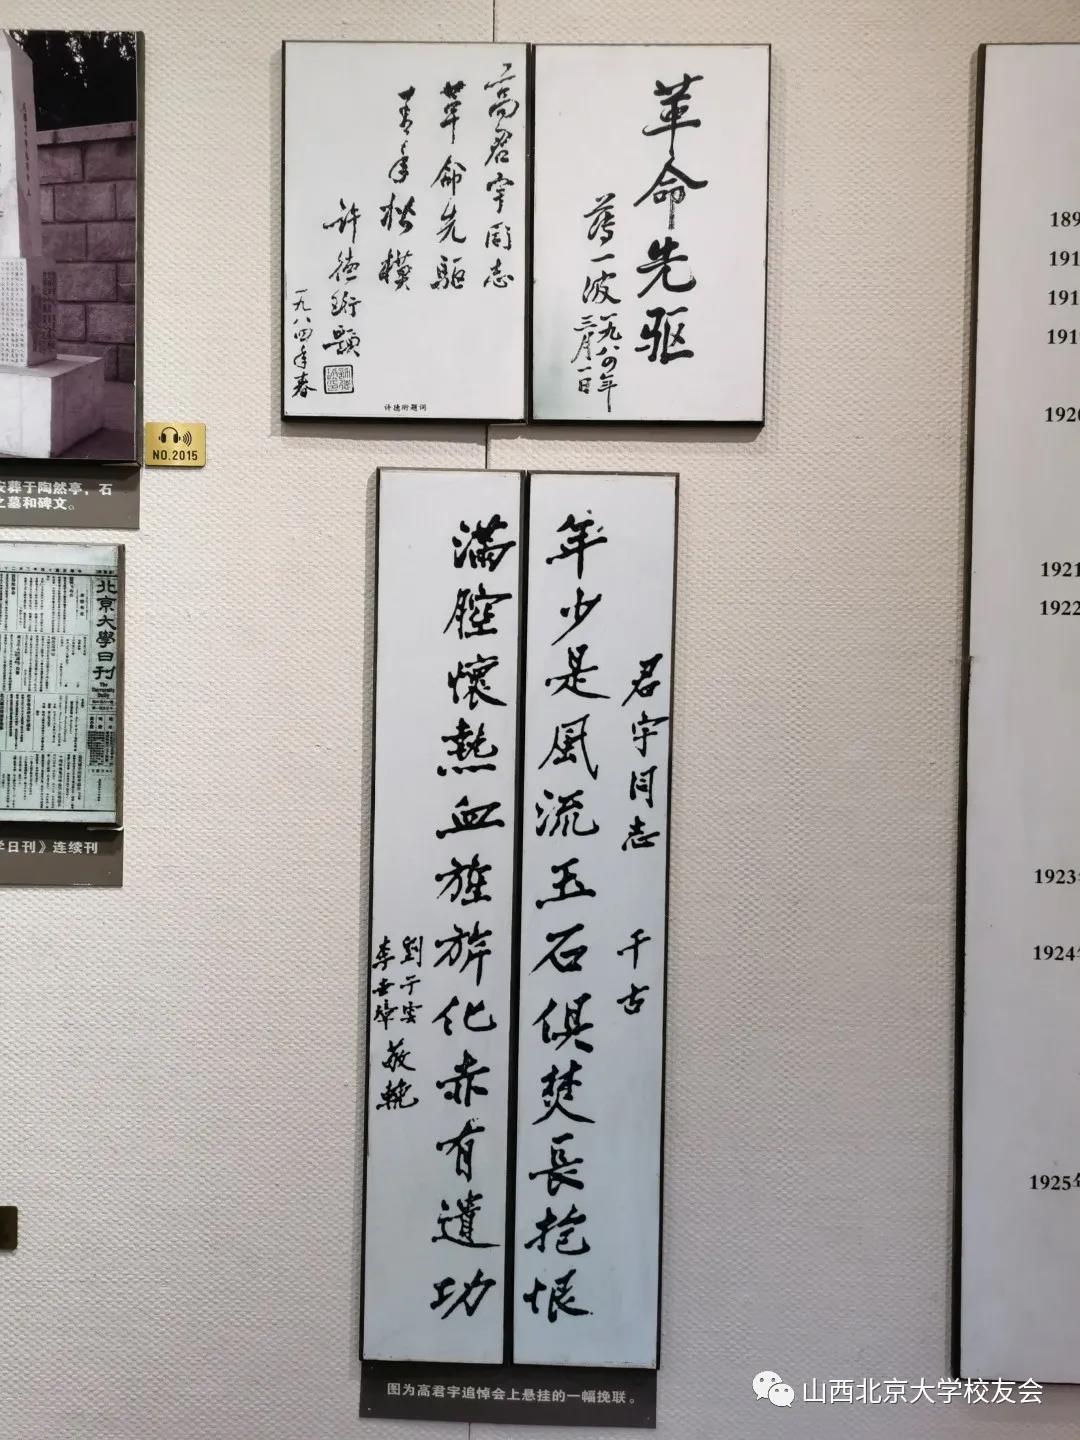 革命先驱
薄一波一九八四年
三月一日
高君宇同志
革命先驱
青年楷模
许德珩题
一九八四年春
许德珩题词
NO.2015
安葬于陶然亭，石
之墓和碑文。
北京大學日刊
The
University
Daily
学日刊》连续刊
君宇同志 千古
年少是風流玉石俱焚長抱恨
滿腔懷熱血旌旂化赤有遺功
劉于雲
李世璋
敬輓
图为高君宇追悼会上悬挂的一幅挽联。
189
191
191
191
1920
1921
1922
1923
1924年
1925年
山西北京大学校友会